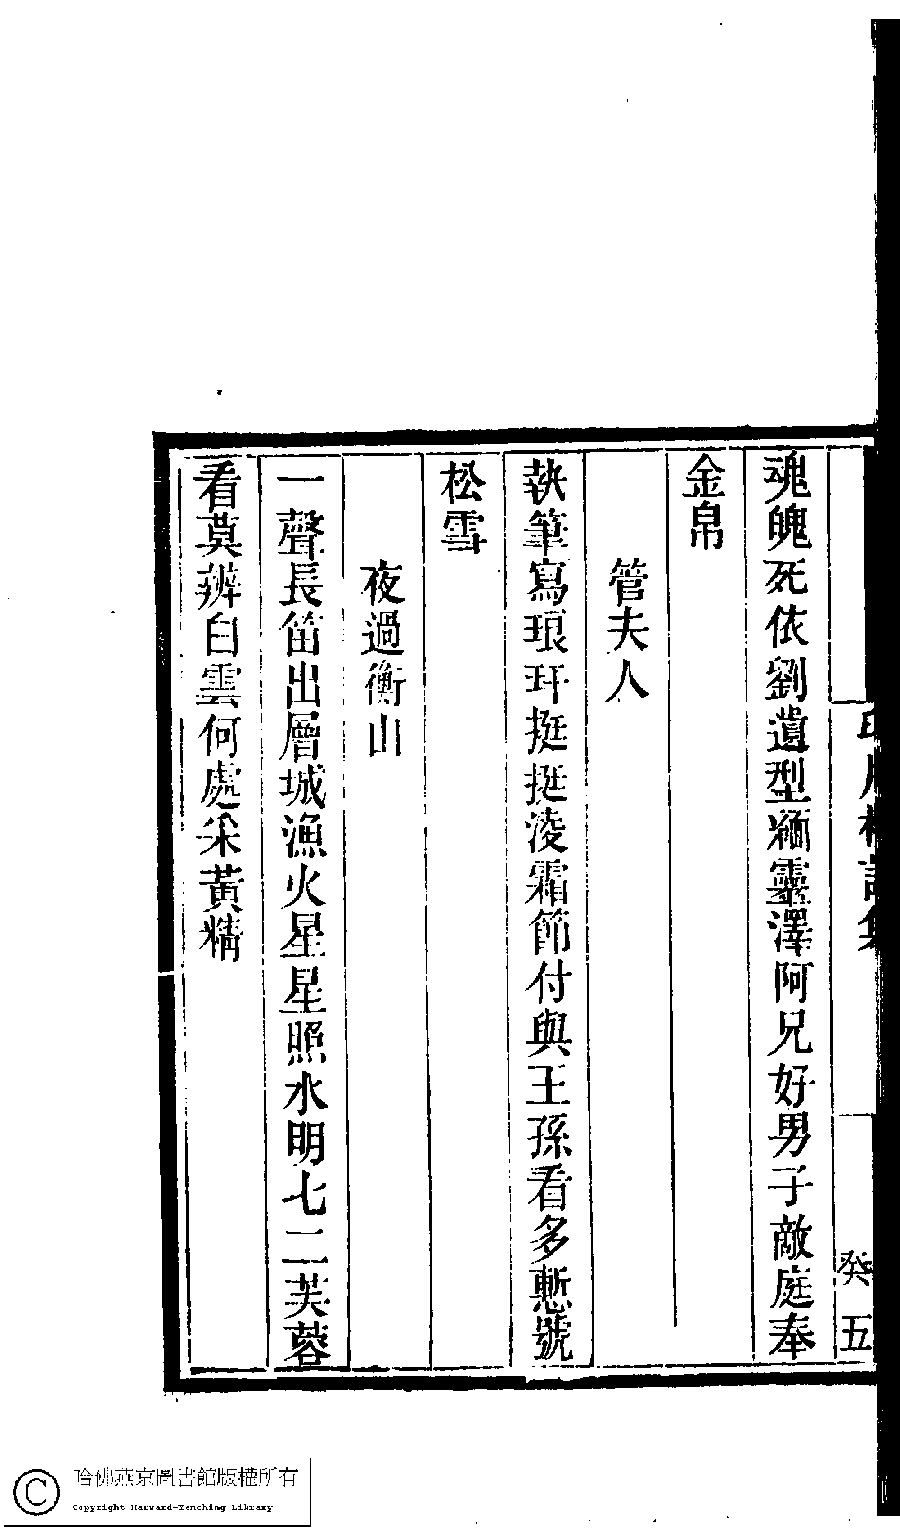 癸 五
魂魄死依劉遺型緬靈澤阿兄好男子敵庭奉
金帛
管夫人
執筆寫琅玕挺挺淩霜節付與王孫看多慙號
松雪
夜過衡山
一聲長笛出層城漁火星星照水明七二芙蓉
看莫辨白雲何處采黃精
哈佛燕京圖書館版權所有
Copyright Harvard-Yenching Library